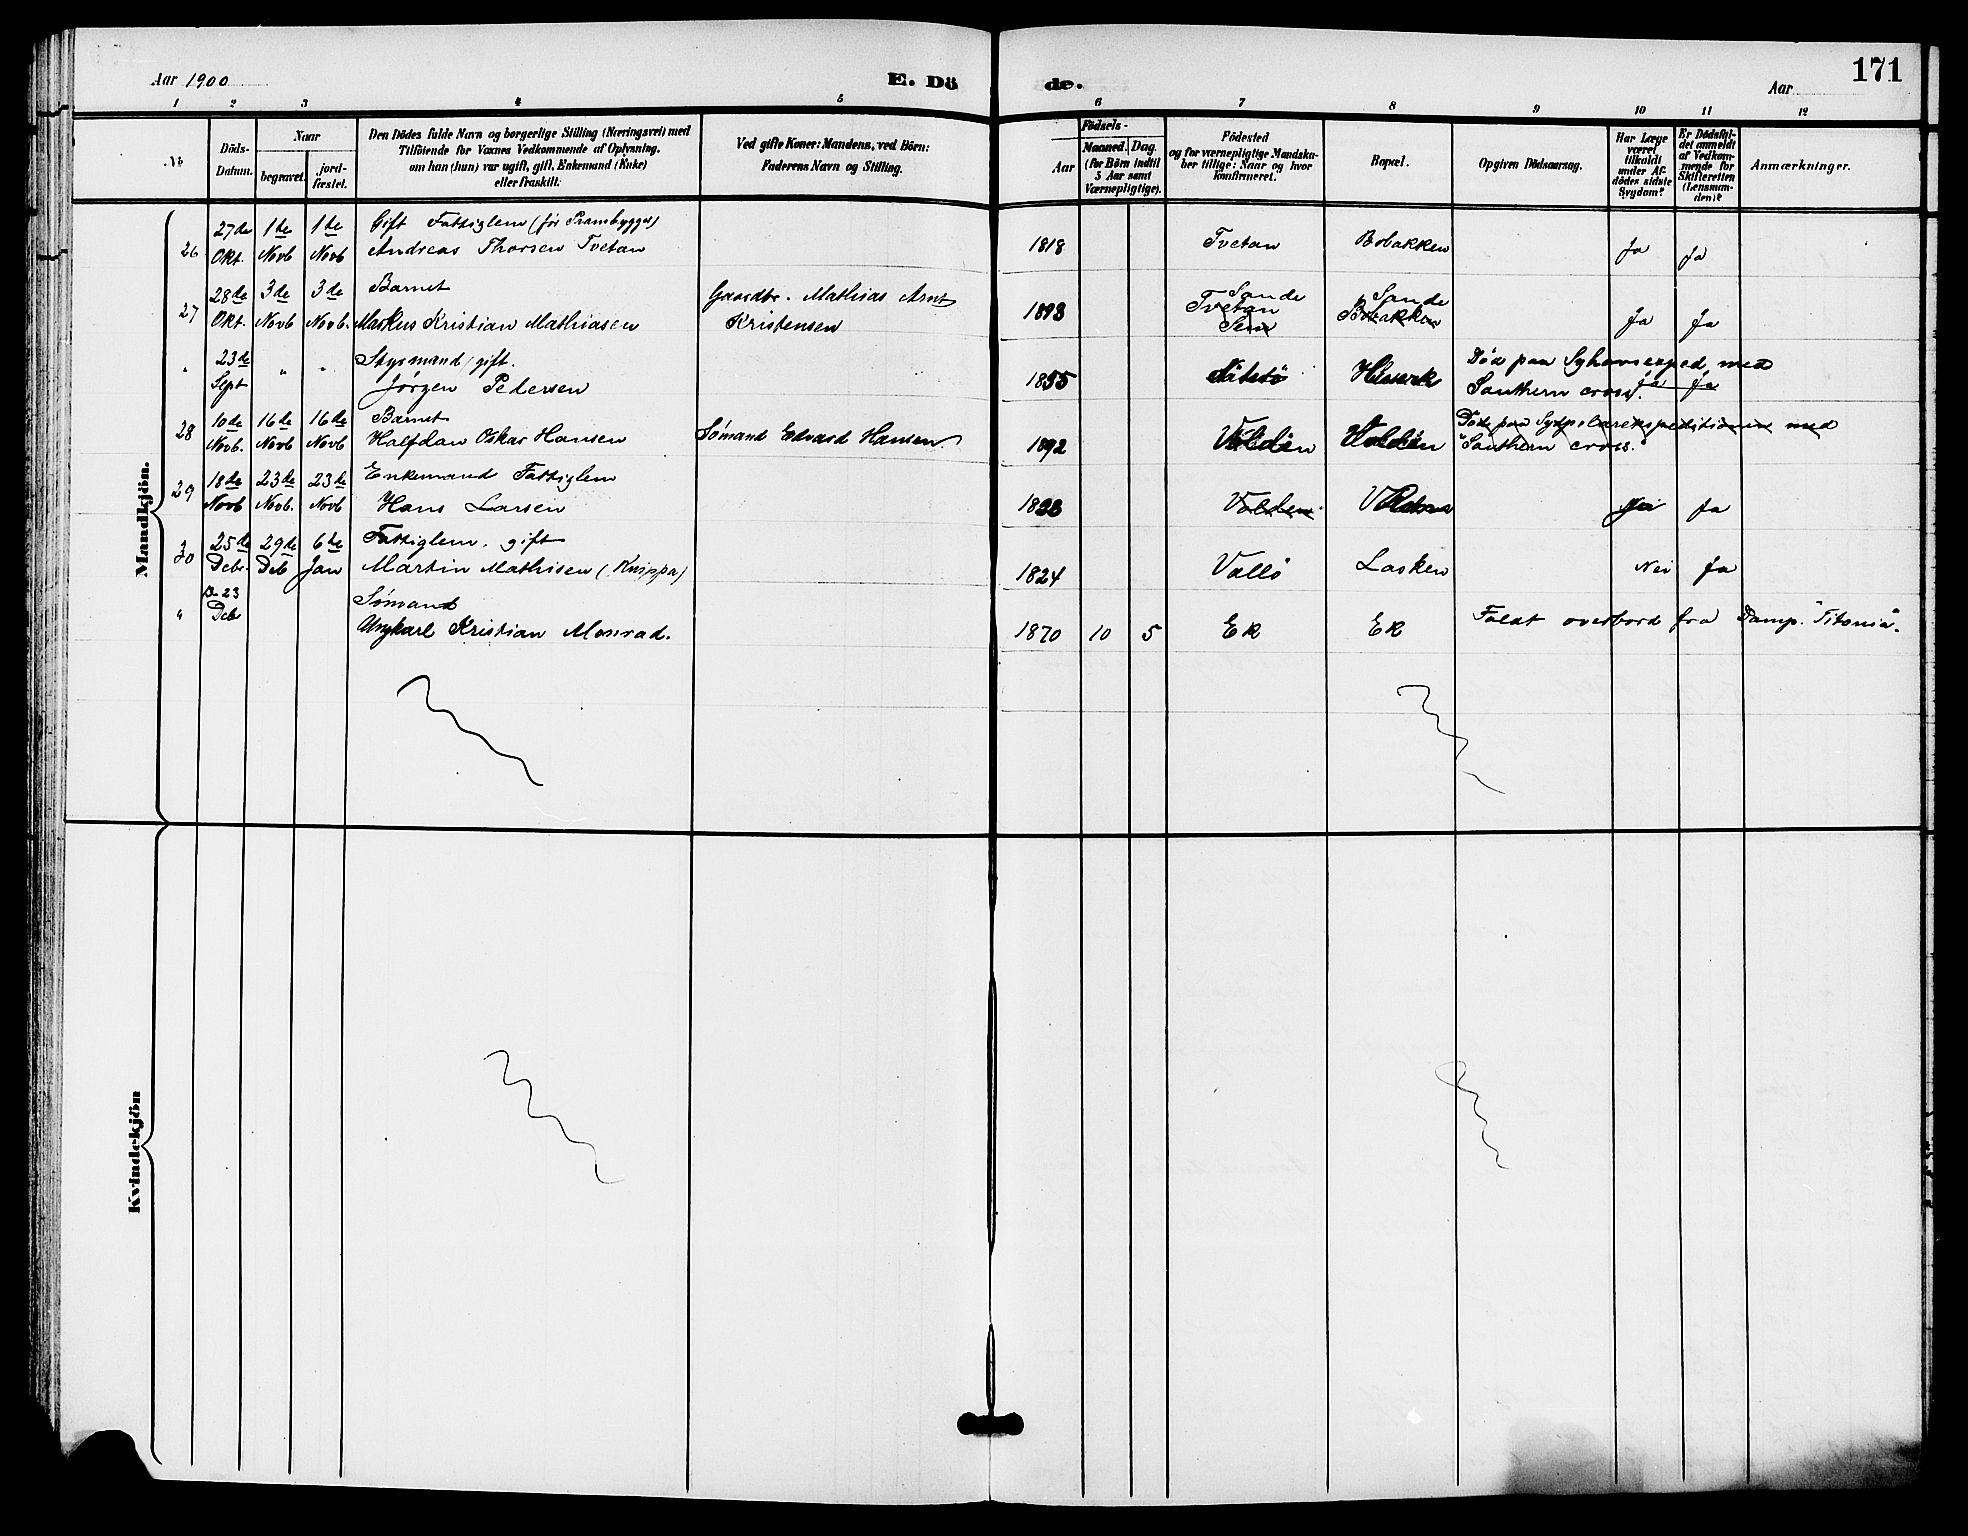 Aar 1900
E. Dö
de.
Aar
171
1 2 3 4 5 6 7 8 9 10 11 12
No
Döds-
Datum.
Naar
begravet.
jord-
fæstet.
Den Dödes fulde Navn og borgerlige Stilling (Næringsvei) med
Tilföiende for Voxnes Vedkommende af Oplysning,
om han (hun) var ugift, gift, Enkemand (Enke)
eller fraskilt.
Ved gifte Koner: Mandens, ved Börn:
Faderens Navn og Stilling.
Födsels-
Aar
Maaned. Dag.
(for Börn indtil
5 Aar samt
Værnepligtige).
Födested
og for værnepligtige Mandska-
ber tillige: Naar og hvor
konfirmeret.
Bopæl.
Opgiven Dödsaarsag.
Har Læge
været
tilkaldt
under Af-
dödes sidste
Sygdom?
Er Dödsfal-
det anmeldt
af Vedkom-
mende for
Skifteretten
(Lensman-
den)?
Anmærkninger.
Mandkjön.
27de 1de 1de Gift Fattiglem (før Prambygger)
26 Okt. Novb Novb Andreas Thorsen Tvetan 1818 Tvetan Bobakken Ja Ja
28de 3de 3de Barnet Gaardbr. Mathias Arnt Sande Sande
27 Okt. Novb Novb. Markus Kristian Mathiasen Kristensen Tvetan Bobakken Ja Ja
Sem
23de Styrmand, gift. Død paa med
" Sept " " Jørgen Pedersen 1855 Southern cross. Ja Ja
10de 16de 16de Barnet Døde paa Sydpolarekspeditionen med
28 Novb. Novb Novb Halfdan Oskar Hansen Sømand Edvard Hansen 1892 Volden Volden "Southern cross."
18de 23de 23de Enkemand Fattiglem
29 Novb Novb. Novb Hans Larsen Volden Ja
25de 29de 6te Fattiglem. gift
30 Debr. Deb Jan Martin Mathisen (Knippa) 1824 Vallö Lasken Nei Ja
23 Sømand
" Debr Ungkarl Kristian Monrad. 1870 10 5 Ek Ek Faldt overbord fra Damp. "Titania".
Kvindekjön